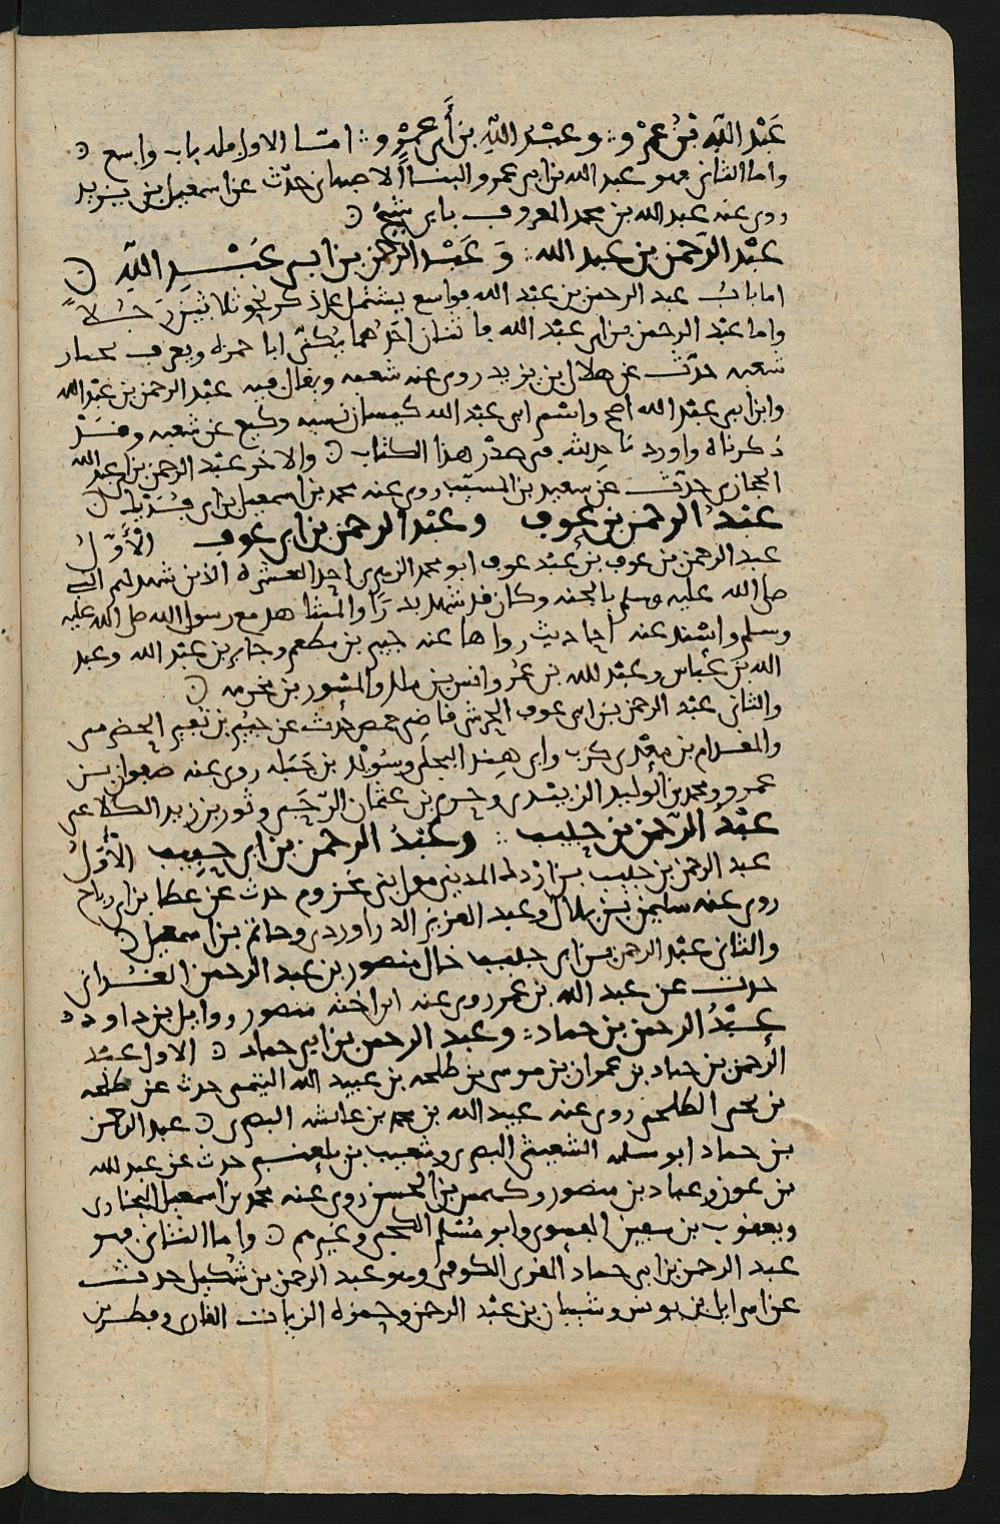 عَبْد الله بْنُ عَمْرو :. وعبْد الله بن أَبي عَمْرو :. امّا الاول فله باب واسع
واما الثاني فهو عبد الله بن ابي عمرو البنّاء الاصبهاني حدّث عن اسمعيل بن يزيد
روى عنه عبد الله بن محمد المعروف بابي شيخ
عبْد الرّحمن بن عبد الله :. وَ عَبْد الرحمن بن ابي عَبْدِ اللهِ
اما باب عبد الرحمن بن عبْد الله فواسع يشتمل على ذكر نحو ثلاثين رَجُلاً
واما عبْد الرحمن بن ابي عبْد الله فاثنان احَدُهما يُكنّى ابا حمزه ويعرف بجار
شعبه حدّث عن هلال بن يزيد روى عنه شعبه ويقال فيه عبْد الرحمن بن عبْد الله
وابن ابي عبْد الله اصح واسْم ابي عبْد الله كيسان نسبه وكيع عن شعبه وقَدْ
ذكرناه واوردنا حديثه في صدْر هذا الكتاب والاخر عبْد الرحمن بن ابي عبد الله
الحجازي حدّث عن سعيد بن المسيّب روى عنه محمد بن اسمعيل بن ابي فُدَيْك
عَبْدُ الرحمن بن عَوف وعبْد الرحمن بن ابي عوف الأَوّلُ
عبد الرحمن بن عوف بن عبْد عوف ابو محمد الزهري احد العشرة الذين شهد لهم النبي
صلى الله عليه وسلم بالجنه وكان قد شهد بدرًا والمشاهد مع رسول الله صلى الله عليه
وسلم واسْند عنه احاديث رواها عنه جبير بن مطعم وجابر بن عبْد الله وعبد
الله بن عبّاس وعبْد الله بن عمر وانس بن مالك والمسْور بن مخرمه
والثاني عبْد الرحمن بن ابي عوف الجرشي قاضي حمص حدث عن جبيْر بن نفير الحضرمي
والمقدام بن معْدي كرب وابي هند البجلي وسُويْد بن جَبَله روى عنه صفوان بن
عمرو ومحمد بن الوليد الزبيْدي وحريز بن عثمان الرّحَبي وثور بن يزيد الكلاعي
عبْدُ الرّحمن بن حبيب :. وعَبْدُ الرحمن بن ابي حبيب الأَوّلُ
عبد الرحمن بن حبيب بن ازدك المديني مولى بني مخزوم حدث عن عطا بن ابي رباح
روى عنه سليمن بن بلال وعبد العزيز الدراوردي وحاتم بن اسمعيل
والثاني عبْد الرحمن بن ابي حبيب خال منصور بن عبد الرحمن الغداني
حدث عن عبد الله بن عمر روى عنه ابن اخته منصور ووايل بن داود
عبْدُ الرحمن بن حماد :. وعبد الرحمن بن ابي حماد الاول عبْد
الرحمن بن حماد بن عمران بن موسى بن طلحه بن عبيد الله التيمي حدث عن طلحه
بن يحيى الطلحي روى عنه عبيد الله بن محمد بن عائشه البصري عبد الرحمن
بن حماد ابو سلمه الشعيثي البصري وشعيب بن حدث عن عبد الله
بن عون وعباد بن منصور وكهمس بن الحسن روى عنه محمد بن اسمعيل البخاري
ويعقوب بن سفين الفسوي وابو مسْلم الكجي وغيرهم واما الثاني فهو
عبد الرحمن بن ابي حماد المقرئ الكوفي وهو عبد الرحمن بن شكيل حدث
عن اسرايل بن يونس وشيبان بن عبْد الرحمن وحمزه الزيات القاري وفطر بن